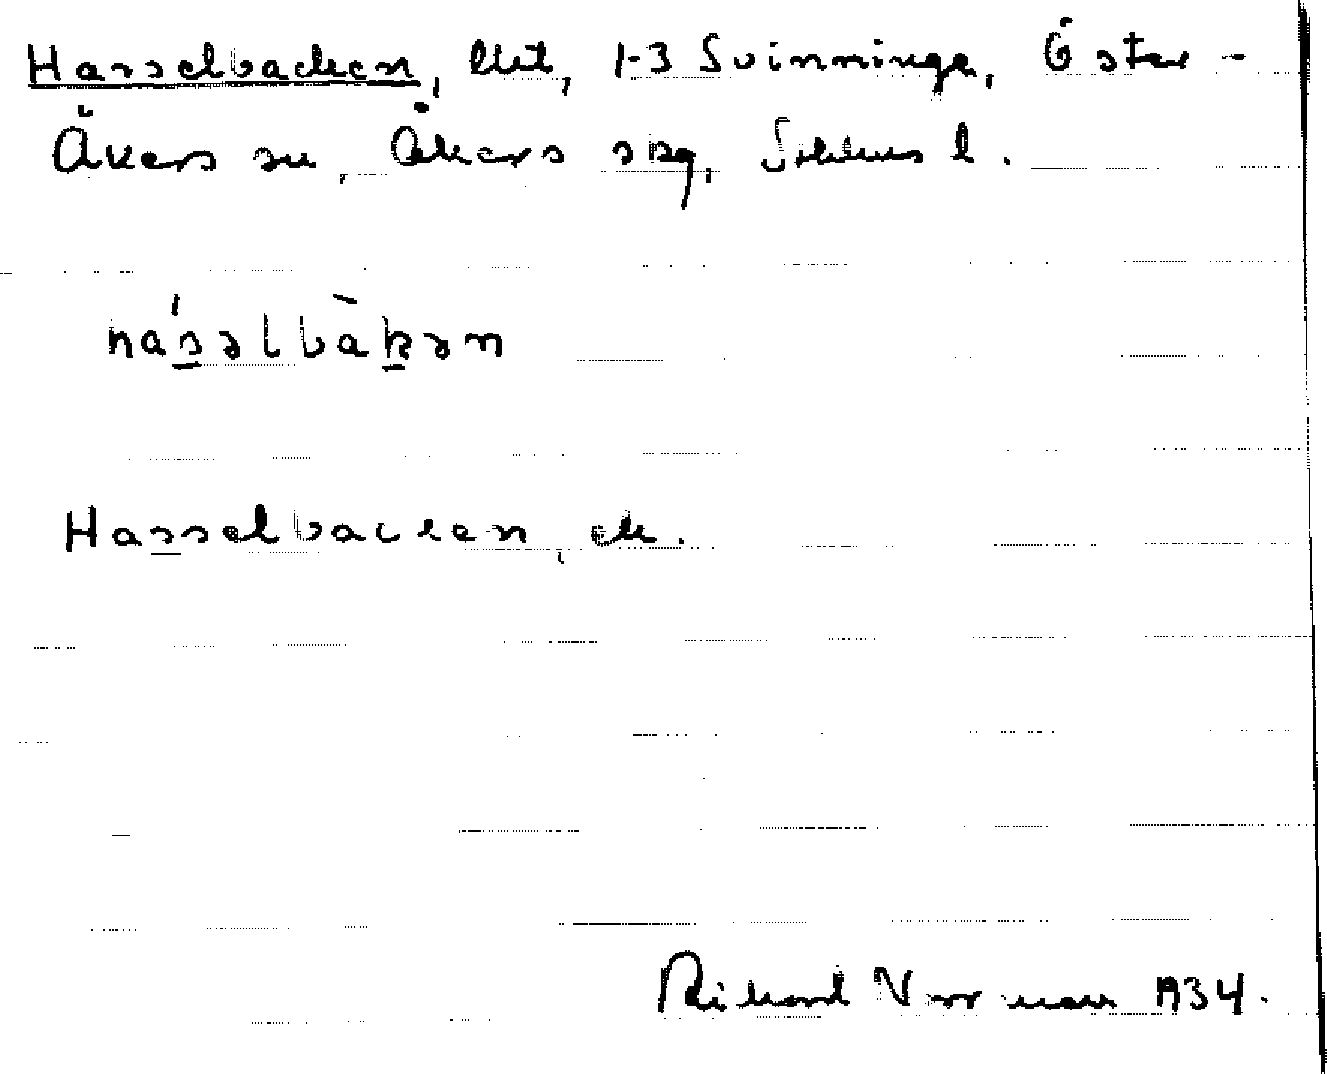 Hasselbacken, lht, 1-3 Svinninge, Öster-
Åkers sn, Åkers skg, Sthlms l.
há́s̲əlbàk̲ən
Hasselbacken, ek.
Rikard Norrman 1934.